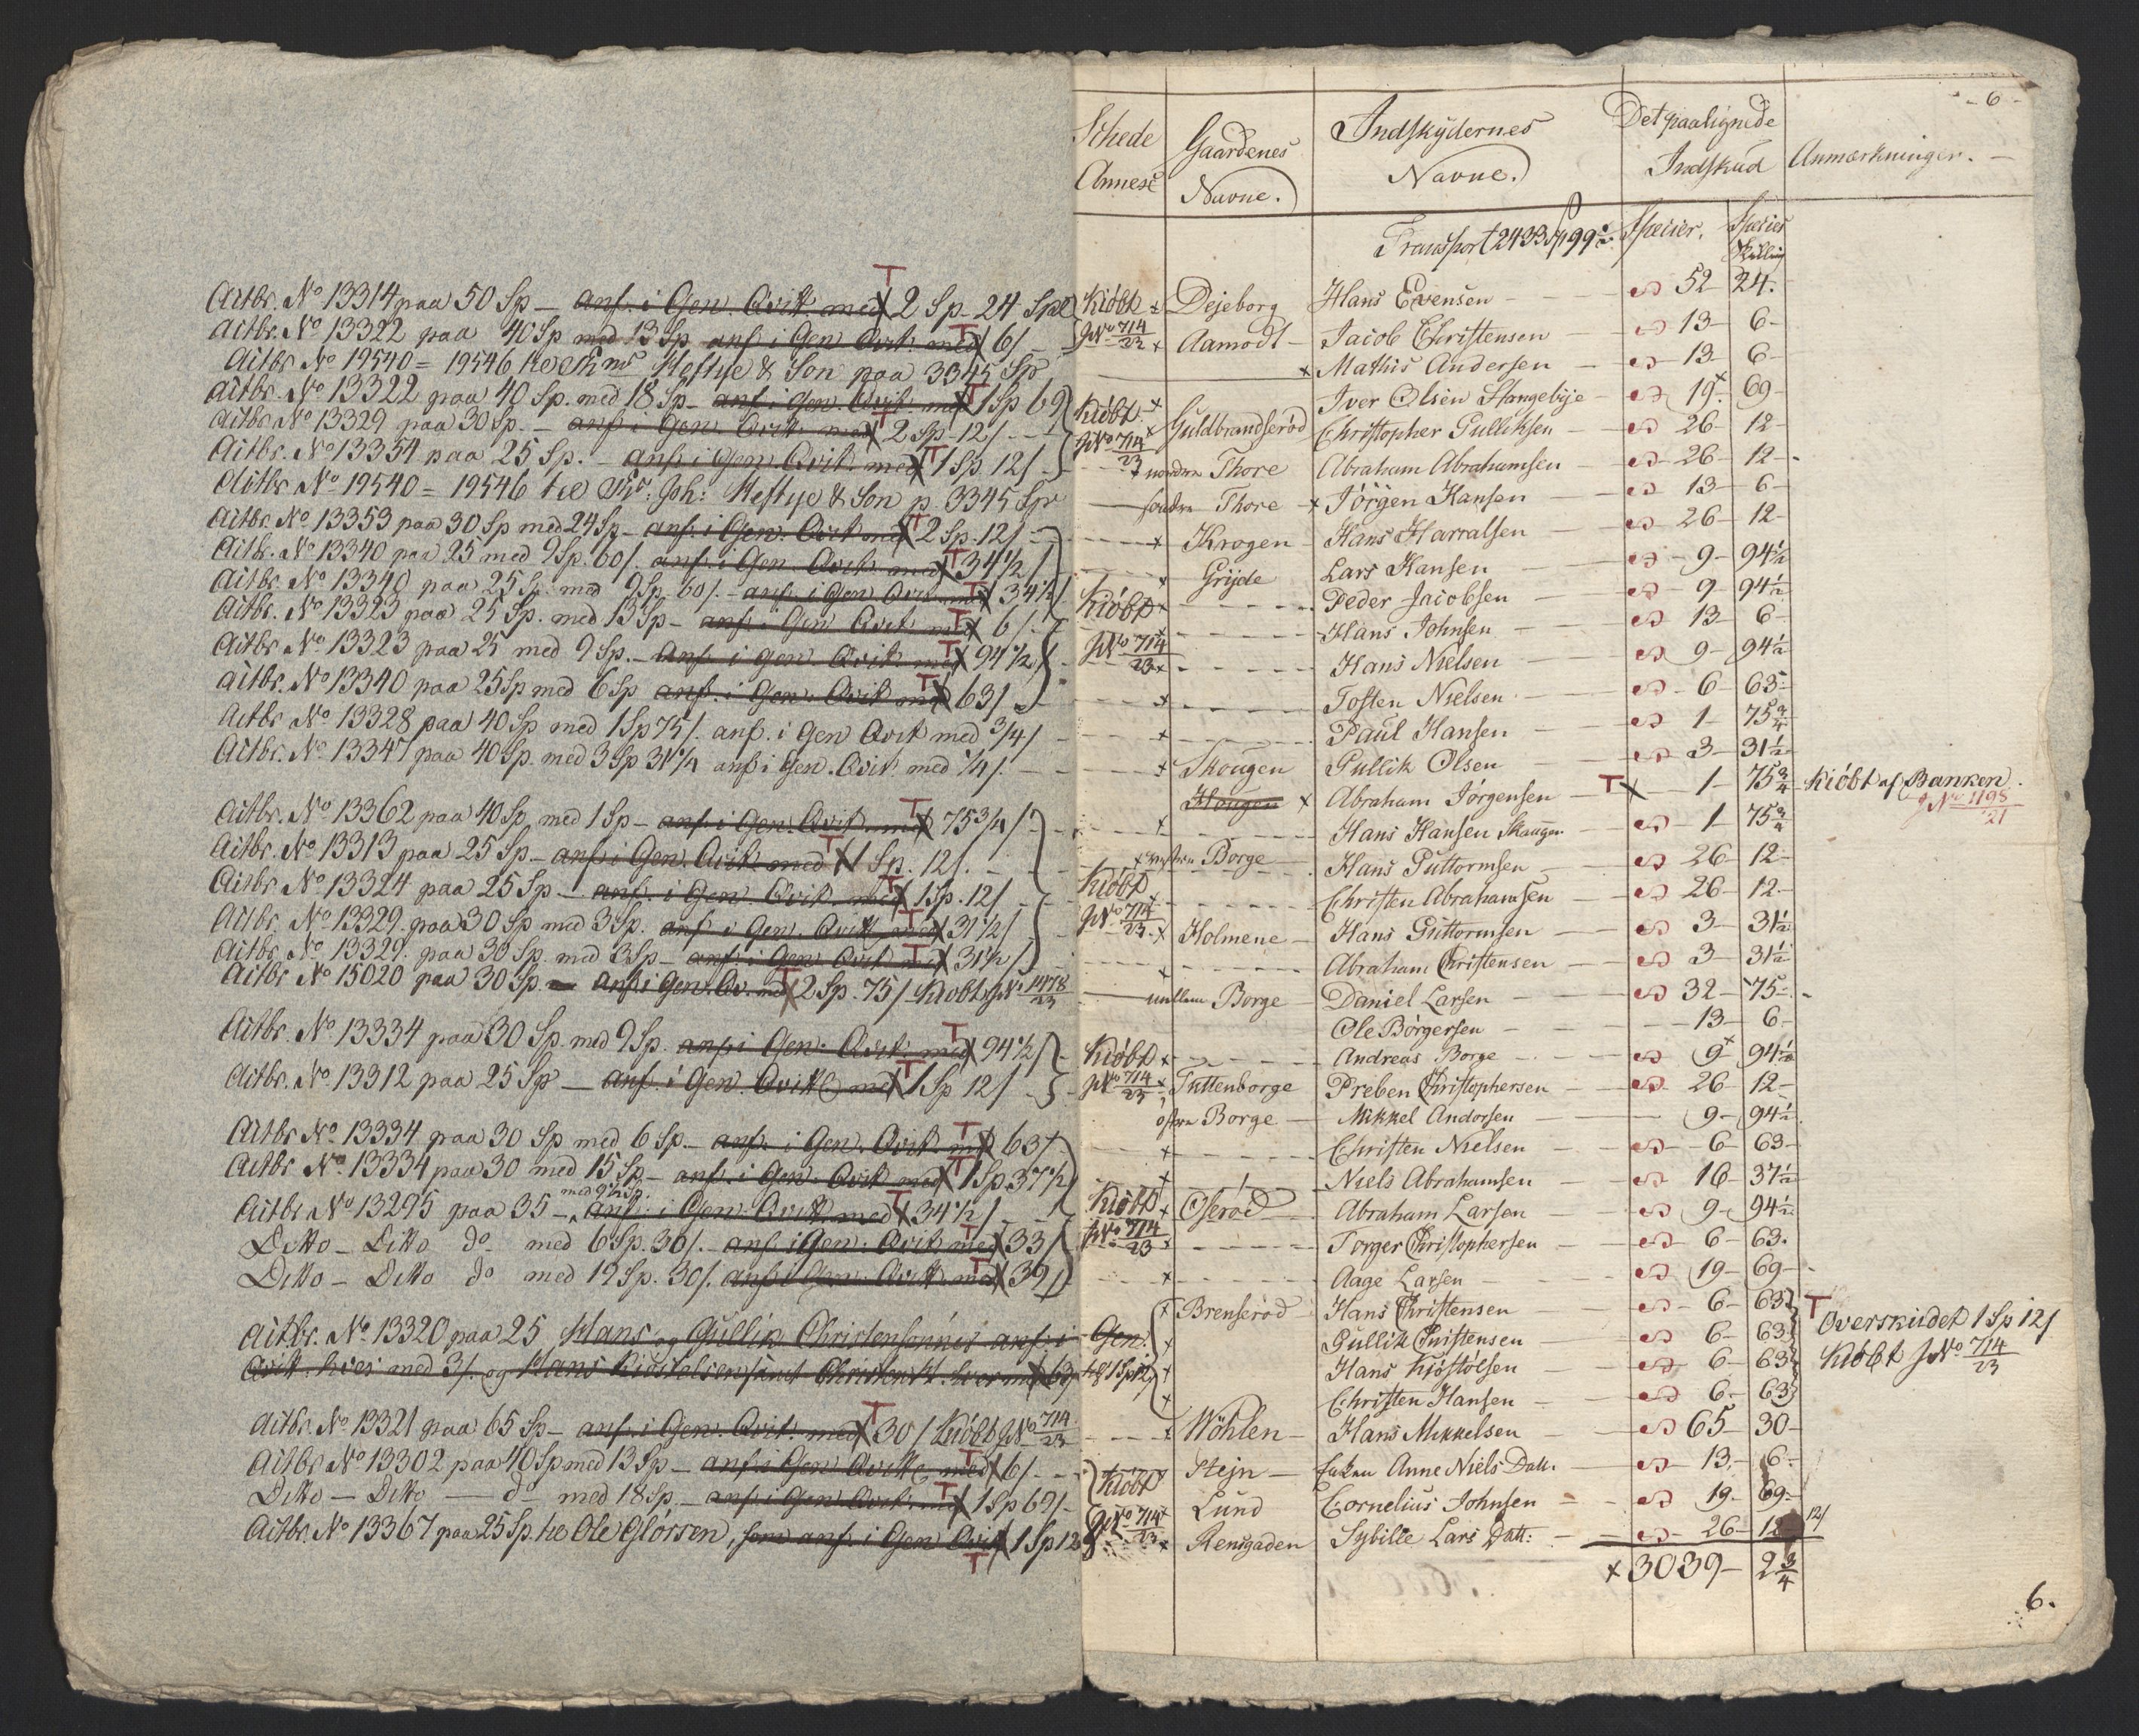 Actbr. No 13314 paa 50 Sp – anf. i Gen. Qvitt. med 2 Sp. 24
Actbr. No 13322 paa 40 Sp med 13 Sp anf. i Gen Qvit. med 6/
Actbr No 19540 = 19546 Heftye & Son paa 3345 Sp
Actbr. No 13322 paa 40 Sp. med 18 Sp – anf. i Gen. Qvit. med 1 Sp 69
Actbr No 13329 paa 30 Sp. – anf. i Gen. Qvit. med 2 Sp 12/
Actbr. No 13354 paa 25 Sp. – anf. i Gen. Qvit. med 1 Sp. 12/
Actbr No 19540 = 19546 Joh: Heftye & Son p 3345 Sp
Actbr. No 13353 paa 30 Sp med 24 Sp – anf. i Gen. Qvit med 2 Sp. 12/
Actbr. No 13340 paa 25 med 9 Sp. 60/. anf. i Gen. Qvit. med 34 1/2/
Actbr. No 13340 paa 25 Sp. med 9 Sp. 60/. – anf. i Gen. Qvit. med 34 1/2/
Actbr. No 13323 paa 25 Sp. med 13 Sp – anf. i Gen Qvit med 6/
Actbr. No 13323 paa 25 med 9 Sp. – anf i gen Qvit med 94 1/2/
Actbr. No 13340 paa 25 Sp med 6 Sp anf. i Gen. Qvit med 63/
Actbr No 13328 paa 40 Sp med 1 Sp 75/. anf. i Gen Qvit med 3/4/
Actbr. No 13347 paa 40 Sp. med 3 Sp 31 1/4 anf i Gen. Qvit. med 1/4/.
Actbr. No 13362 paa 40 Sp. med 1 Sp – anf i Gen. Qvit. med 75 3/4/
Actbr. No 13313 paa 25 Sp – anf i Gen. Qvit med 1 Sp. 12/.
Actbr No 13324 paa 25 Sp – anf. i Gen. Qvit. med 1 Sp. 12/
Actbr. No 13329 paa 30 Sp med 3 Sp. anf i Gen. Qvitt med 31 1/2/
Actbr. No 13329. paa 30 Sp. med 3 Sp – anf. i Gen. Qvit med 31 1/2/
Actbr No 15020 paa 30 Sp. – anf i Gen. Qv. med 2 Sp. 75/ Kiøbt JNo 1478/23
Actbr. No 13334 paa 30 Sp. med 9 Sp. anf. i Gen. Qvit. med 94 1/2/
Actbr. No 13312 paa 25 Sp – anf. i Gen. Qvitt med 1 Sp 12/
Actbr No 13334 paa 30 Sp med 6 Sp. – anf. i Gen. Qvit med 63/
Actbr No 13334 paa 30 med 15 Sp – anf. i Gen. Qvit med 1 Sp. 37 1/2
Actbr No 13295 paa 35 – med 9 1/2 Sp. anf. i Gen. Qvitt. med 34 1/2/
Ditto – Ditto do med 6 Sp. 30/. – anf. i Gen. Qvit med 33/
Ditto – Ditto do med 19 Sp. 30/. anf. i Gen. Qvitt. med 39/
Actbr. No 13320 paa 25 Hans og Gullik Christensønner anf. i Gen.
Qvitt. hver med 3/. og Hans Kiøstolsen samt Christen H. hver med 63/
Actbr. No 13321 paa 65 Sp – anf. i Gen. Qvit. med 30/ Kiøbt JNo 714/23
Actbr No 13302 paa 40 Sp med 13 Sp – anf. i Gen Qvitt med 6/
Ditto – Ditto – do – med 18 Sp. – anf i Gen. Qvit. med 1 Sp 69/
Actbr. No 13367 paa 25 Sp. Ole Glórsen, som anf. i Gen Qvit 1 Sp 12
- 6 -
Gaardenes Navne. Indskydernes Navne. Det paalignede Indskud Anmærkninger.
Transport 2433 Sp 99 Species. Species Skilling
Kiøbt Dejeborg Hans Evensen 52 24.
JNo 714/23 Aamodt Jacob Christensen 13 6
Mathis Andersen 13 6
Iver Olsen Stangebye 19 69
Kiøbt Guldbrandserød Christopher Gulliksen 26 12
JNo 714/23 nordre Thore Abraham Abrahamsen 26 12
søndre Thore Jörgen Hansen 13 6
Krogen Hans Harralsen 26 12
Gryde Lars Hansen 9 94 1/2
Kiøbt Peder Jacobsen 9 94 1/2
Hans Johnsen 13 6
JNo 714/23 Hans Nielsen 9 94 1/2
Tosten Nielsen 6 63
Paul Hansen 1 75 3/4
Skougen Gullik Olsen 3 31 1/2
Hougen Abraham Jörgensen T 1 75 3/4 Kiöbt af Banken. JNo 1198/21
Hans Hansen Skaugen 1 75 3/4
vestre Borge Hans Guttormsen 26 12
Kiøbt Christen Abrahamsen 26 12
JNo 714/23 Holmene Hans Guttormsen 3 31 1/2
Abraham Christensen 3 31 1/2
mellem Borge Daniel Larsen 32 75
Ole Børgersen 13 6
Kiøbt Andreas Borge 9 94 1/2
JNo 714/23 Tuttenborge Preben Christophersen 26 12
østre Borge Mikkel Andorsen 9 94 1/2
Christen Nielsen 6 63
Niels Abrahamsen 16 37 1/2
Kiøbt Oserød Abraham Larsen 9 94 1/2
JNo 714/23 Torger Christophersen 6 63.
Aage Larsen 19 69
Brenserød Hans Christensen 6 63 T Overskudet 1 Sp 12/
Gullik Christensen 6 63 Kiöbt JNo 714/23
Hans Kiøstolsen 6 63
Christen Hansen 6 63
Wøhlen Hans Mikkelsen 65 30
Kiøbt Stejn Enken Anne Niels Datt. 13 6
Lund Cornelius Johnsen 19 69
JNo 714/23 Rensgaden Sybille Lars Datt: 26 12 12/
3039 2 3/4
6.